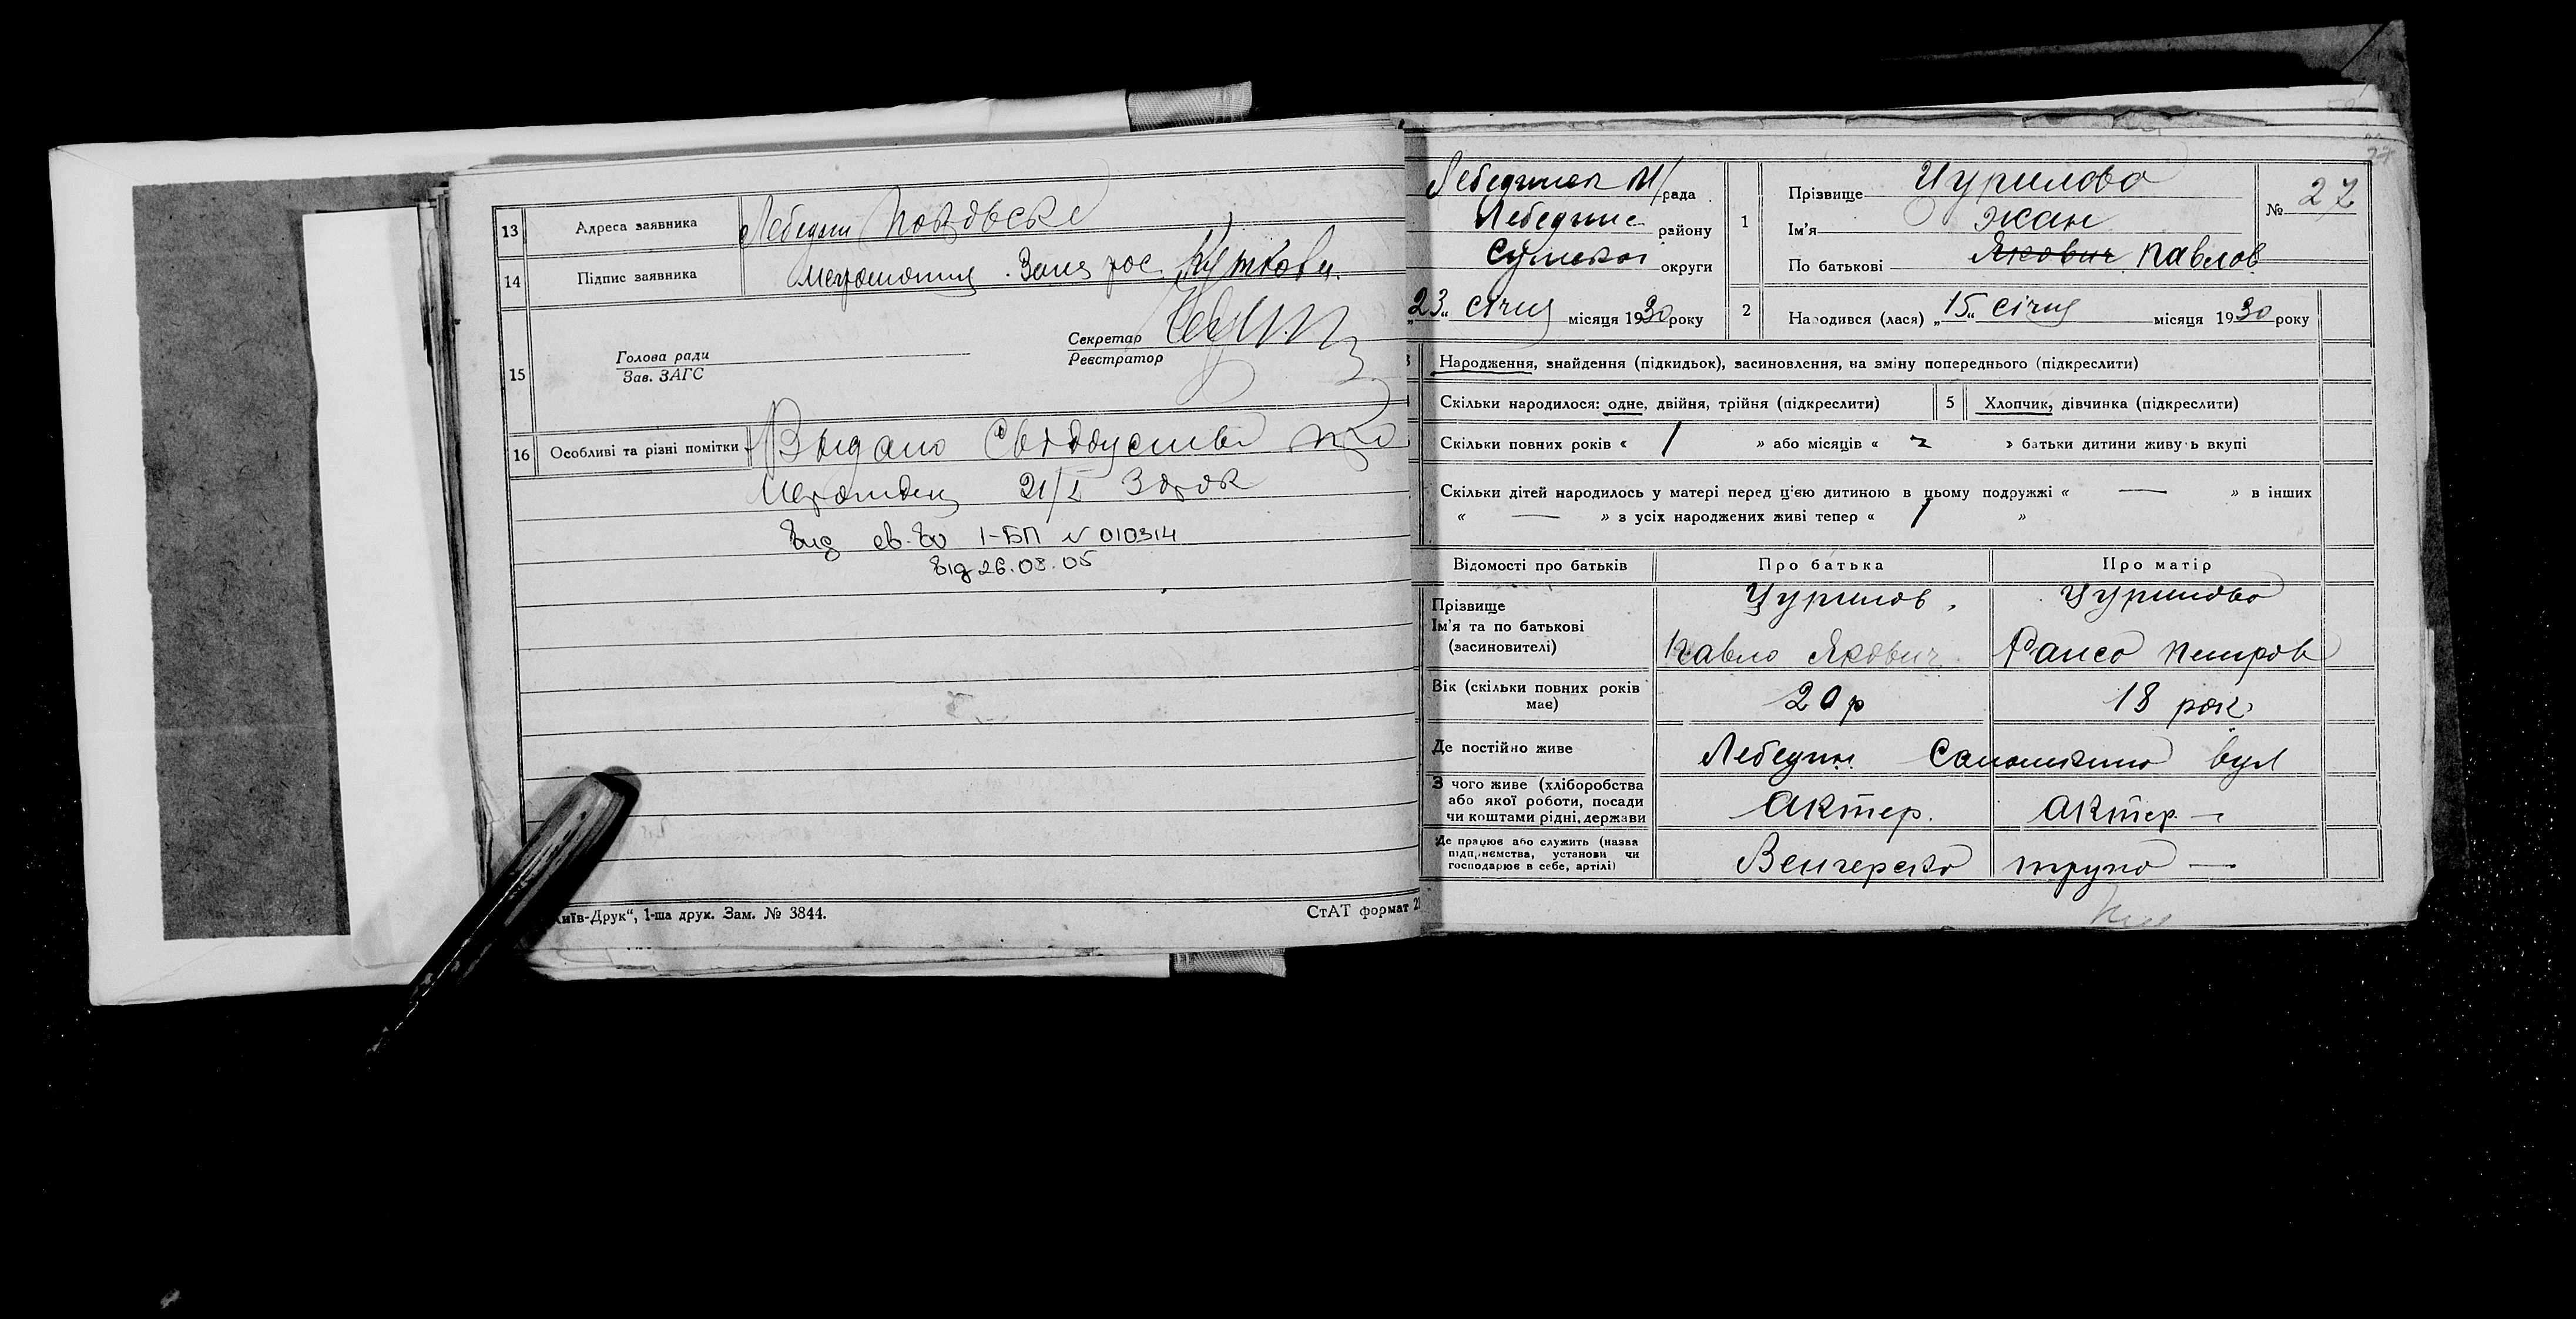 13 Адреса заявника Лебедин
14 Підпис заявника
15 Голова ради Секретар
Зав. ЗАГС Реєстратор
16 Особливі та різні помітки Выдано
21/I 30 рок
вид св-во 1-БП № 010314
від 26.08.05
"Київ-Друк", 1-ша друк. Зам. № 3844.
СтАТ формат
27
рада
Лебединс району
Сумської округи
"23" січня місяця 1930 року
1 Прізвище Цурилово
Ім'я Жан
По батькові Якович Павлов
№ 27
2 Народився (лася) "15" січня місяця 1930 року
Народження, знайдення (підкидьок), засиновлення, на зміну попереднього (підкреслити)
Скільки народилося: одне, двійня, трійня (підкреслити) 5 Хлопчик, дівчинка (підкреслити)
Скільки повних років « 1 » або місяців « » батьки дитини живуть вкупі
Скільки дітей народилось у матері перед цією дитиною в цьому подружжі « — » в інших
« — » з усіх народжених живі тепер « 1 »
Відомості про батьків Про батька Про матір
Прізвище Цурилов Цурилово
Ім'я та по батькові Павло Якович Петров
(засиновителі)
Вік (скільки повних років має) 20 р 18 рок.
Де постійно живе Лебедин вул
З чого живе (хліборобства Актер. Актер —
або якої роботи, посади
чи коштами рідні, держави
Де працює або служить (назва Венгерско трупо —
підприємства, установи чи
господарює в себе, артілі)